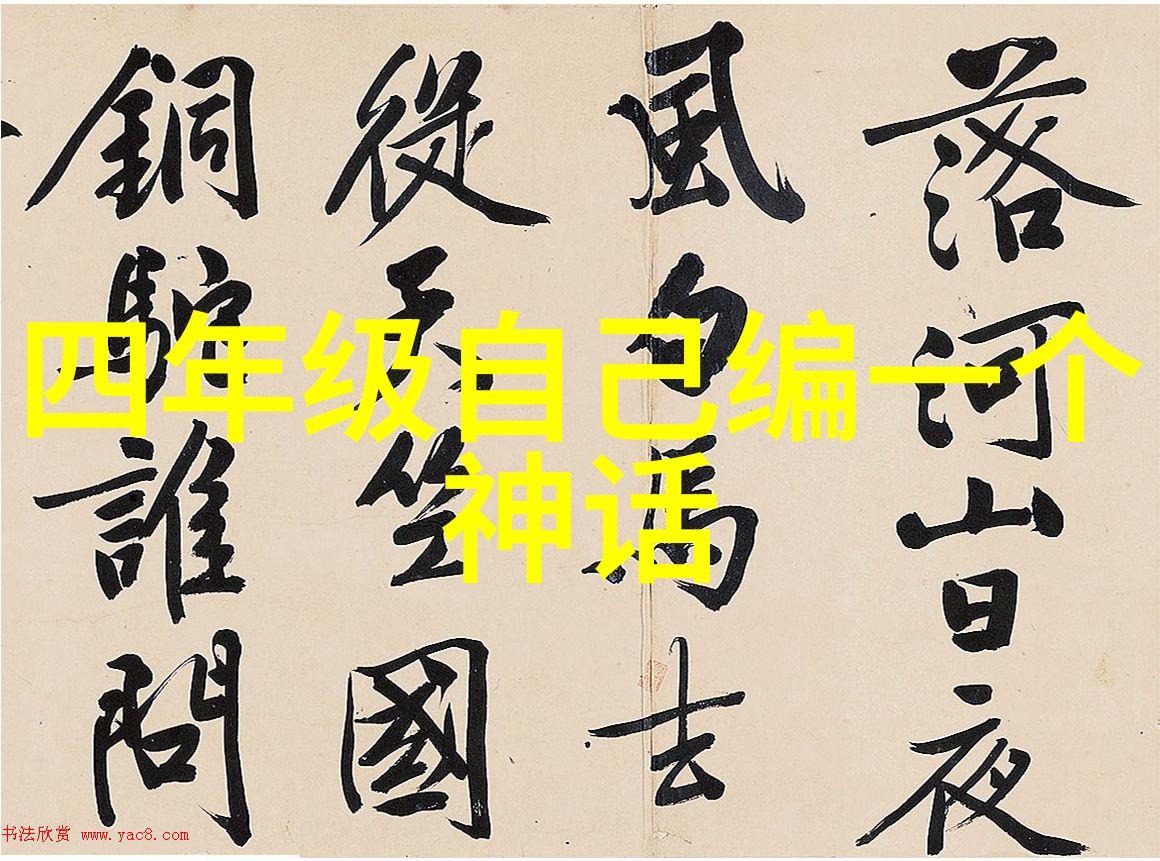 落河山日夜
風白馬去
從天竺國
銅駝誰問
四年级自己编一个
神话
书法欣赏 www.yac8.com